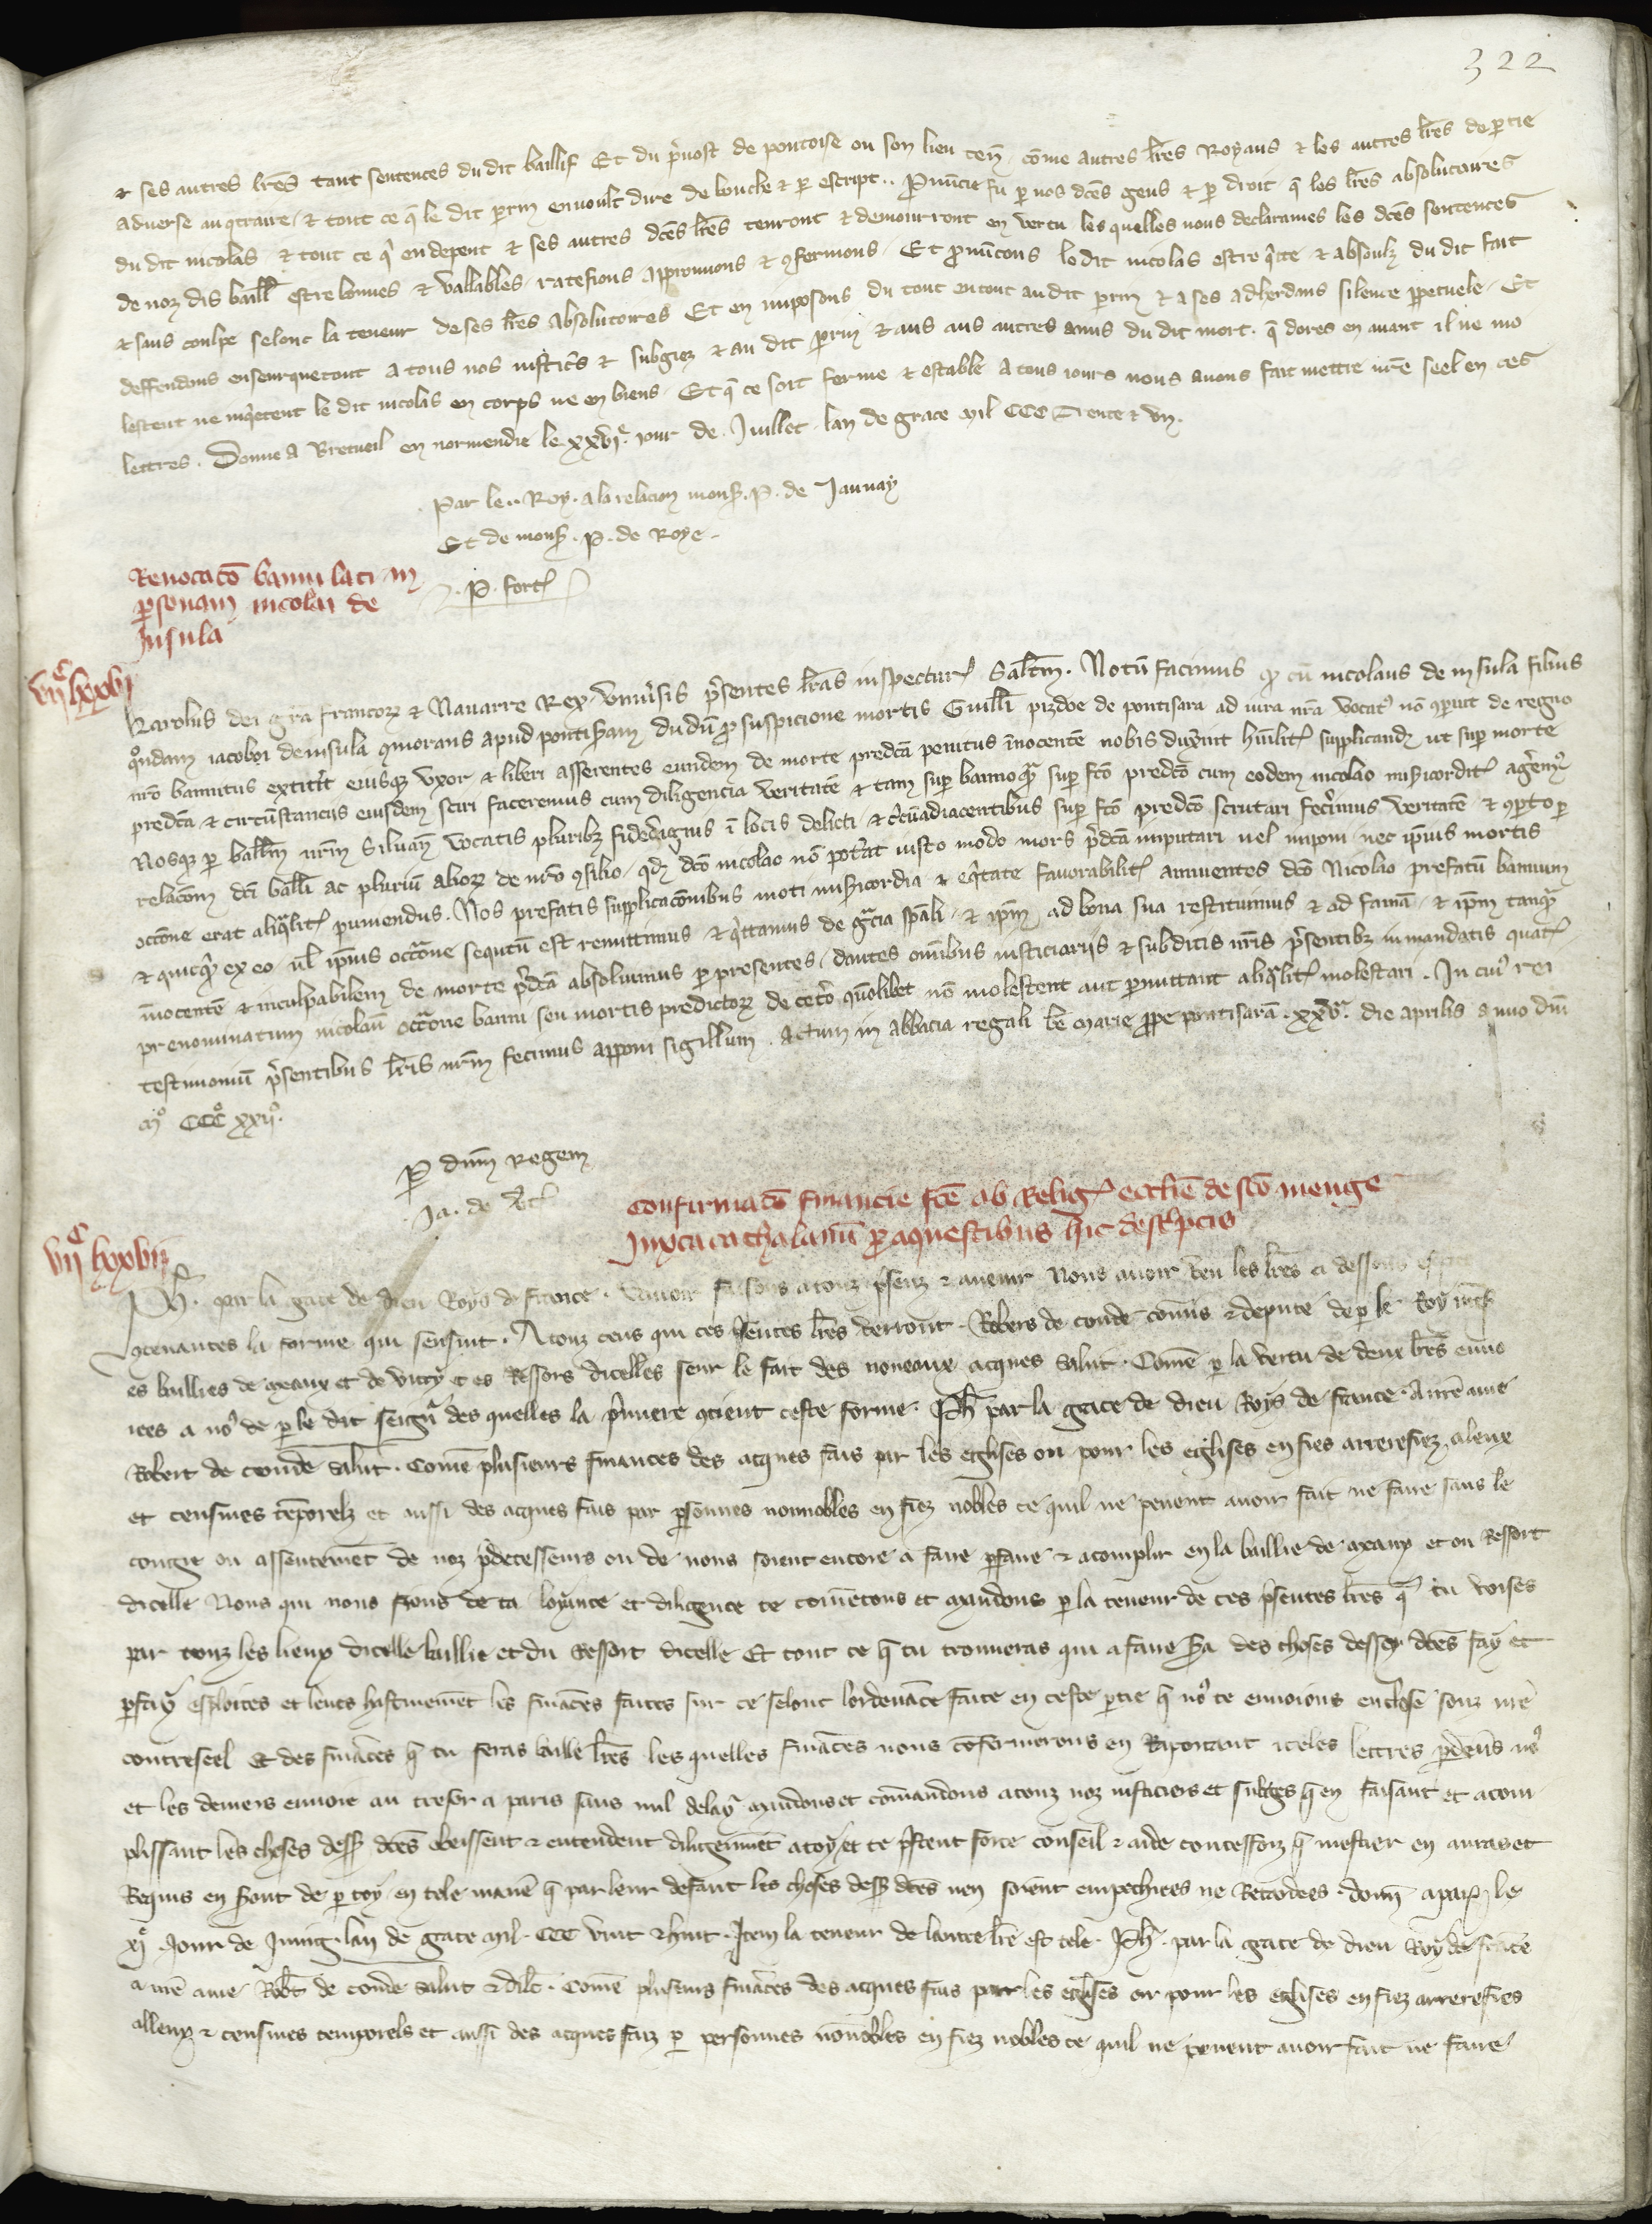 322
⁊ ses autres lr̃es tant sentences du dit baillif Et du p̃uost de pontoise ou son lieu ten̄ . cōme autres lr̃es Royaus ⁊ les autres lr̃es de ꝑtie
aduerse au ꝯtraire . ⁊ tout ce q̃ le dit ꝑrin en voult dire de bouche ⁊ ꝑ escript .. Ꝓnūcie fu ꝑ nos dc̃es gens ⁊ ꝑ droit q̃ les lr̃es absolutoires
du dit nicolas ⁊ tout ce q̃ en depent ⁊ ses autres dc̃es lr̃es tenront ⁊ demourront en vertu les quelles nous declarames les dc̃es sentences
de noz dis baill̃ estre bonnes ⁊ vallables . ratefions approuuons ⁊ ꝯfermons . Et ꝓnūcons le dit nicolas estre q̃tte ⁊ absoulz du dit fait
⁊ sans coulpe selonc la teneur de ses lr̃es absolutoires Et en imposons du tout en tout au dit ꝑrin ⁊ a ses adherdans silence ꝑpetuele . Et
deffendons enseurquetout a tous nos iusticrs̃ ⁊ subgiez ⁊ au dit ꝑrin ⁊ aus autres amis du dit mort . q̃ dores en auant il ne mo
lestent ne inq̃etent le dit nicolas en corps ne en biens . Et q̃ ce soit ferme ⁊ estable a tous iours nous auons fait mettre nr̃e seel en ces
lettres . Donne a Bretueil en normendie le xxviᵉ . iour de Juillet . lan de grace mil CCC Trente ⁊ vn .
Par le .. Roy . a la relacion monsʳ . P . de Jaunay
Et de monsʳ . P . de Roye .
. P . fort̃
Reuocacō banni lati in
ꝑsonam nicolai de
Insula
viiᶜ lxxvi
Karolus dei gr̃a francorꝫ ⁊ Nauarre Rex . Vniu̾sis p̃sentes lr̃as inspectur̃ Sal̃tm . Notū facimus ꝙ cū nicolaus de insula filius
q̊ndam iacobi de insula ꝯmorans apud pontisaram dudū ꝓ suspicione mortis Guill̃i pizdoe de pontisara ad iura nr̃a vocat̾ nō ꝯparuit de regno
nr̃o bannitus extitit eiusqꝫ vxor ⁊ liberi asserentes eundem de morte predc̃a penitus īnocentē nobis duxerint hūilit̾ supplicandꝫ ut sup̱ morte
predc̃a ⁊ circūstanciis eiusdem sciri faceremus cum diligencia veritatē ⁊ tam sup̱ banno q̃ sup̱ fc̃o predc̃o cum eodem nicolao mis̾icordit̾ ag̾em̾
Nosqꝫ ꝑ ball̃m nr̃m Siluan̄ vocatis pluribꝫ fidedignis ī locis delicti ⁊ circūadiacentibus sup̱ fc̃o predc̃o scrutari fec̾imus veritatē ⁊ ꝯp̱to ꝑ
relacōm dc̃i ball̃i ac pluriū aliorꝫ de nr̃o ꝯsilio . ꝙ dc̃o nicolao nō pot̾at iusto modo mors p̃dc̃a imputari uel imponi nec ip̄ius mortis
occōne erat aliq̃lit̾ puniendus . Nos prefatis supplicacōnibus moti mis̾icordia ⁊ eq̃tate fauorabilit̾ annuentes dc̃o Nicolao prefatū bannum
⁊ quicq̃d ex eo ul̃ ip̄ius occc̃one sequtū est remittimus ⁊ q̃ttamus de gr̃cia sp̃ali . ⁊ ip̄m ad bona sua restituimus ⁊ ad famā . ⁊ ip̄m tanq̃
īnocentē ⁊ inculpabilem de morte p̃dc̃a absoluimus ꝑ presentes . dantes om̃ibus iusticiariis ⁊ subditis nr̃is p̃sentibꝫ in mandatis quat̾
prenominatum nicolaū occc̃one banni seu mortis predictorꝫ de cet̾o quōlibet nō molestent aut ꝑmittant aliq̃lit̾ molestari . In cui̾ rei
testimoniū p̃sentibus lr̃is nr̃m fecimus apponi sigillum . Actum in abbacia regali bē marie ꝓpe pontisarā . xxvᵃ . die aprilis anno dn̄i
mᵒ CCCᵒ xxiiᵒ .
Ꝑ dn̄m Regem
Ja . de
Confirmacō financie fc̃e ab Relig̾ eccl̃ie de sc̃o menge
Juxta cathalanū ꝑ aquestibus hic desc̾ptis
viiᶜ lxxvii
Ph̃ . par la grace de dieu Roys de france . Sauoir faisons a touz p̃senz ⁊ auenir Nous auoir veu les lr̃es ci dessous
ꝯtenantes la forme qui sensuit . A touz ceus qui ces p̃sentes lr̃es verront . Robers de conde cōmis ⁊ depute de ꝑ le Roy nr̃es̾
es baillies de meaux et de vitry et es Ressors dicelles seur le fait des noueaux acques salut . Comē ꝑ la vertu de deux lr̃es enuo
iees a no̾ de ꝑ le dit seign̾ des quelles la p̃miere ꝯtient ceste forme . Ph̃ par la grace de dieu Roys de france . A nr̃e ame
Robert de conde salut . Comē plusieurs finances des acques fais par les eglises ou pour les eglises en fies arrerefiez . aleux
et censiues tēporelz et aussi des acques fais par ꝑsonnes nonnobles en fiez nobles ce quil ne peuent auoir fait ne faire sans le
congie ou assentemēt de noz p̃decesseurs ou de nous soient encore a faire ꝑfaire ⁊ acomplir en la baillie de meaux et ou Ressort
dicelle Nous qui nous fions de ta loyaute et diligence te cōmetons et mandons ꝑ la teneur de ces p̃sentes lr̃es q̃ tu voises
par touz les lieux dicelle baillie et du Ressort dicelle Et tout ce q̃ tu trouueras qui a faire s̾a des choses dessus dc̃es fay et
ꝑfay esploites et lieues hastiuemēt les fināces faites sur ce selonc lordenāce faite en ceste ꝑtie q̃ no̾ te enuoions enclose souz nr̃e
contreseel Et des fināces q̃ tu feras baille lr̃es les quelles fināces nous cōfermerons en Raportant iceles lettres ꝑdeuers no̾
et les deniers enuoie au tresor a paris sans nul delay mandons et cōmandons a touz noz iusticiers et subges q̃ en faisant et acom
plissant les choses dess̾ dc̃es obeissent ⁊ entendent diligenmēt a toy et te p̃stent force conseil ⁊ aide toutesfoiz q̃ mestier en auras et
Requis en s̾ont de ꝑ toy en tele maniē q̃ par leur defaut les choses dess̾ dc̃es nen soient empechiees ne Retardees . donn̄ a par̾ . le
xjᵉ Jour de Juing lan de grace mil . CCC vint ⁊ huit . Item la teneur de lautre lr̃e est tele . Ph̃ . par la grace de dieu Roy de frāce
a nr̃e ame Rob̃t de conde salut ⁊ dil̃c . Comē plusieurs fināces des acques fais par les eglises ou pour les eglises en fiez arrerefies
alleux ⁊ censiues temporels et aussi des acques faiz ꝑ personnes nōnobles en fiez nobles ce quil ne peuent auoir fait ne faire